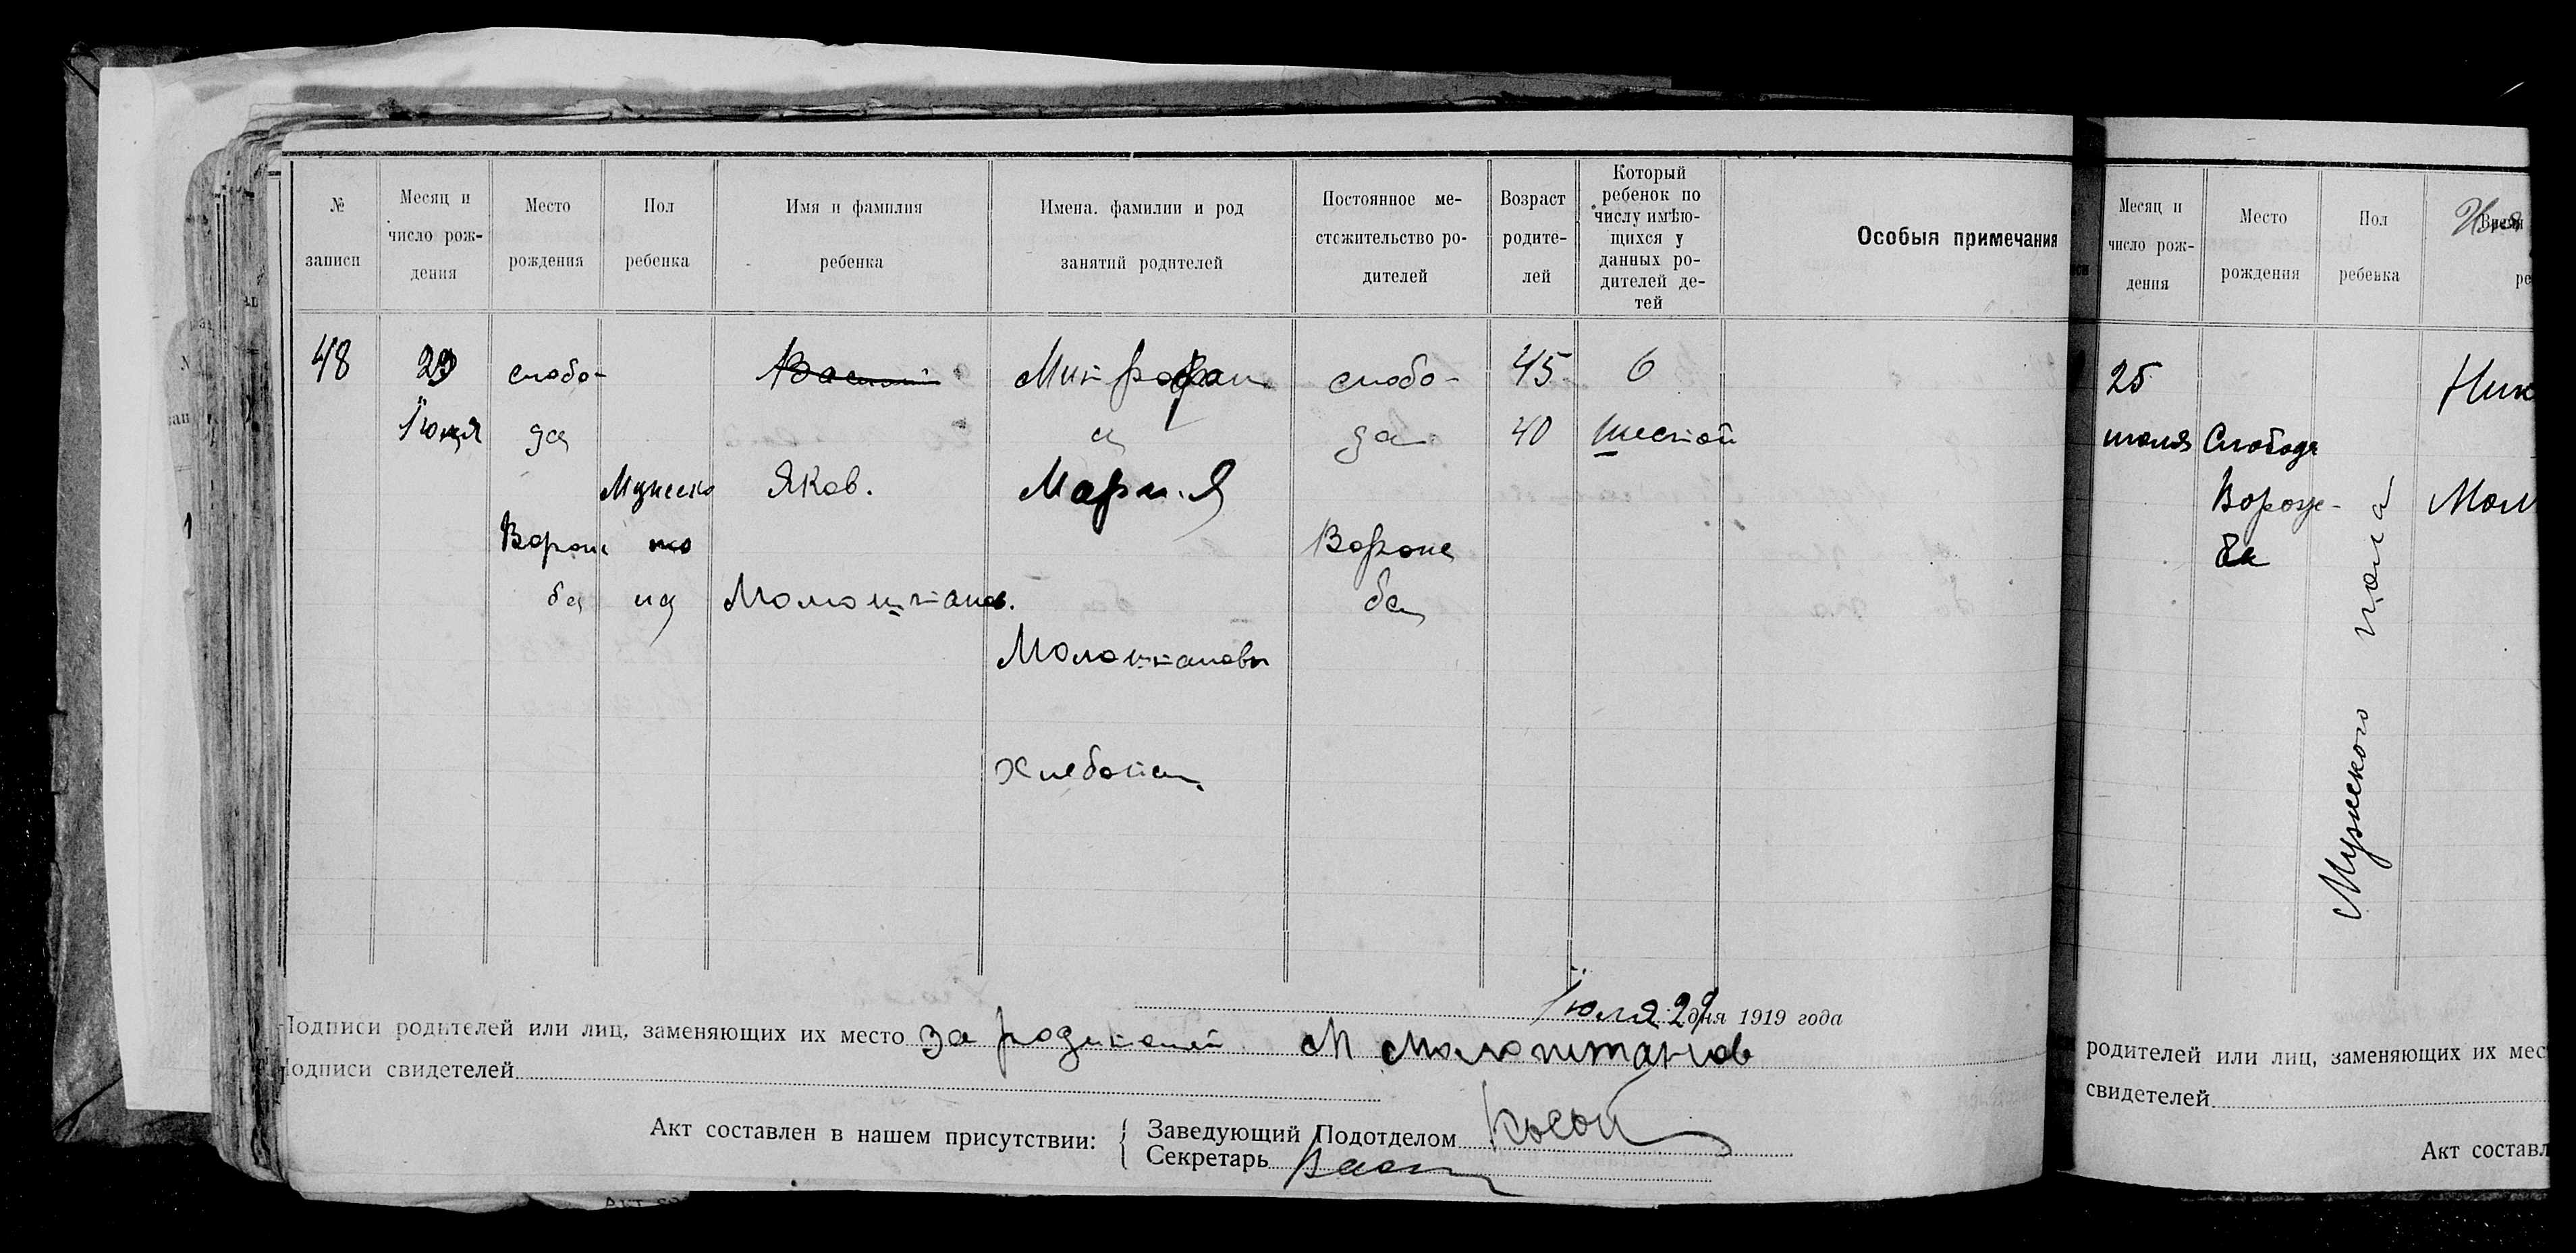 № записи
Месяц и число рож- дения
Место рождения
Пол ребенка
Имя и фамилия ребенка
Имена. фамилии и род занятий родителей
Постоянное ме- стожительство ро- дителей
Возраст родите- лей
Который ребенок по числу имѣю- щихся у данных ро- дителей де- тей
Особыя примечания
48
29 Іюля
слобо- да Вороже ба
Мужеско го
Василий
Яков.
Молоштанов.
Митрофан и
Мари.я
Молоштановы
Хлебопаш.
слобо- да Вороже ба
45
40
6 шестой
Іюля 29 дня 1919 года
Подписи родителей или лиц, заменяющих их место за родителей М Молоштанов
Подписи свидетелей
Акт составлен в нашем присутствии:
Заведующий Подотделом
Секретарь
Месяц и число рож- дения
Место рождения
Пол ребенка
25 июля
Слобода Вороже- ба
Мужского пола
Ник
Мол
родителей или лиц, заменяющих их мес
свидетелей
Акт составл